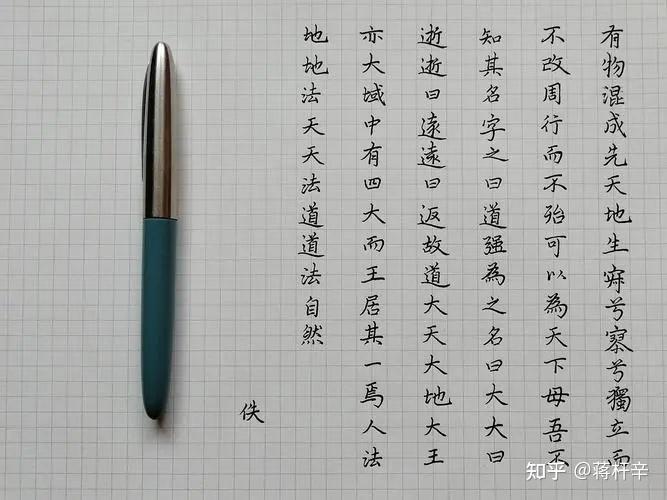 有物混成先天地生寂兮寥兮獨立而
不改周行而不殆可以為天下母吾不
知其名字之曰道强為之名曰大大曰
逝逝曰遠遠曰返故道大天大地大王
亦大域中有四大而王居其一焉人法
地地法天天法道道法自然
佚
知乎 @蒋杆辛